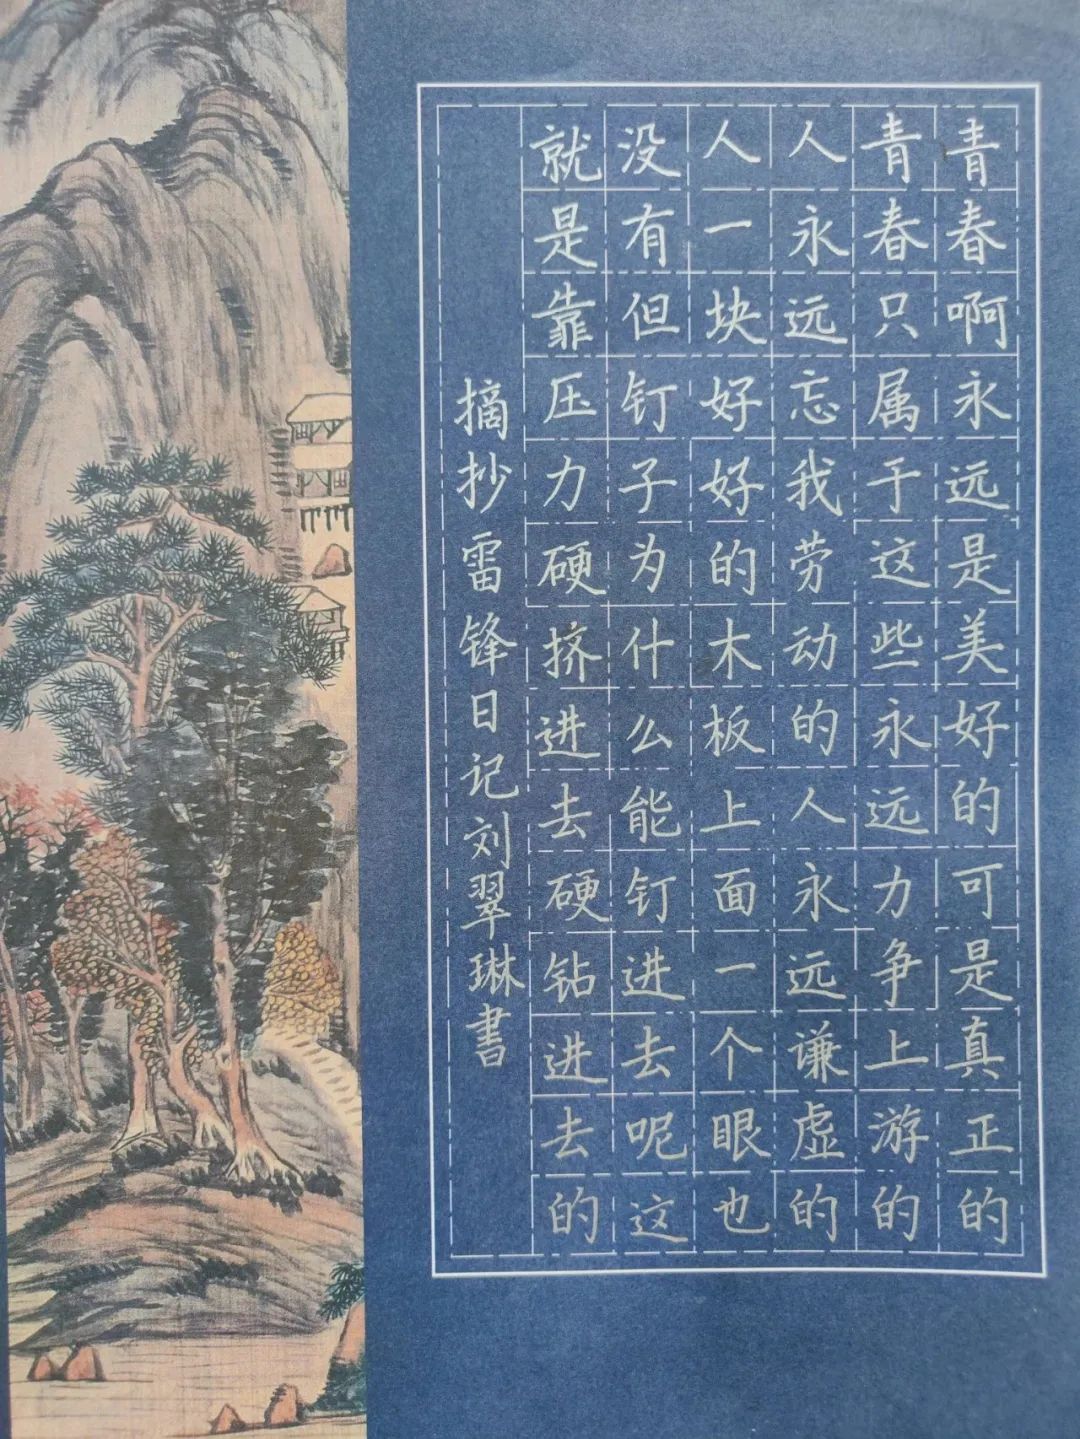 青春啊永远是美好的可是真正的
青春只属于这些永远力争上游的
人永远忘我劳动的人永远谦虚的
人一块好好的木板上面一个眼也
没有但钉子为什么能钉进去呢这
就是靠压力硬挤进去硬钻进去的
摘抄雷锋日记刘翠琳書